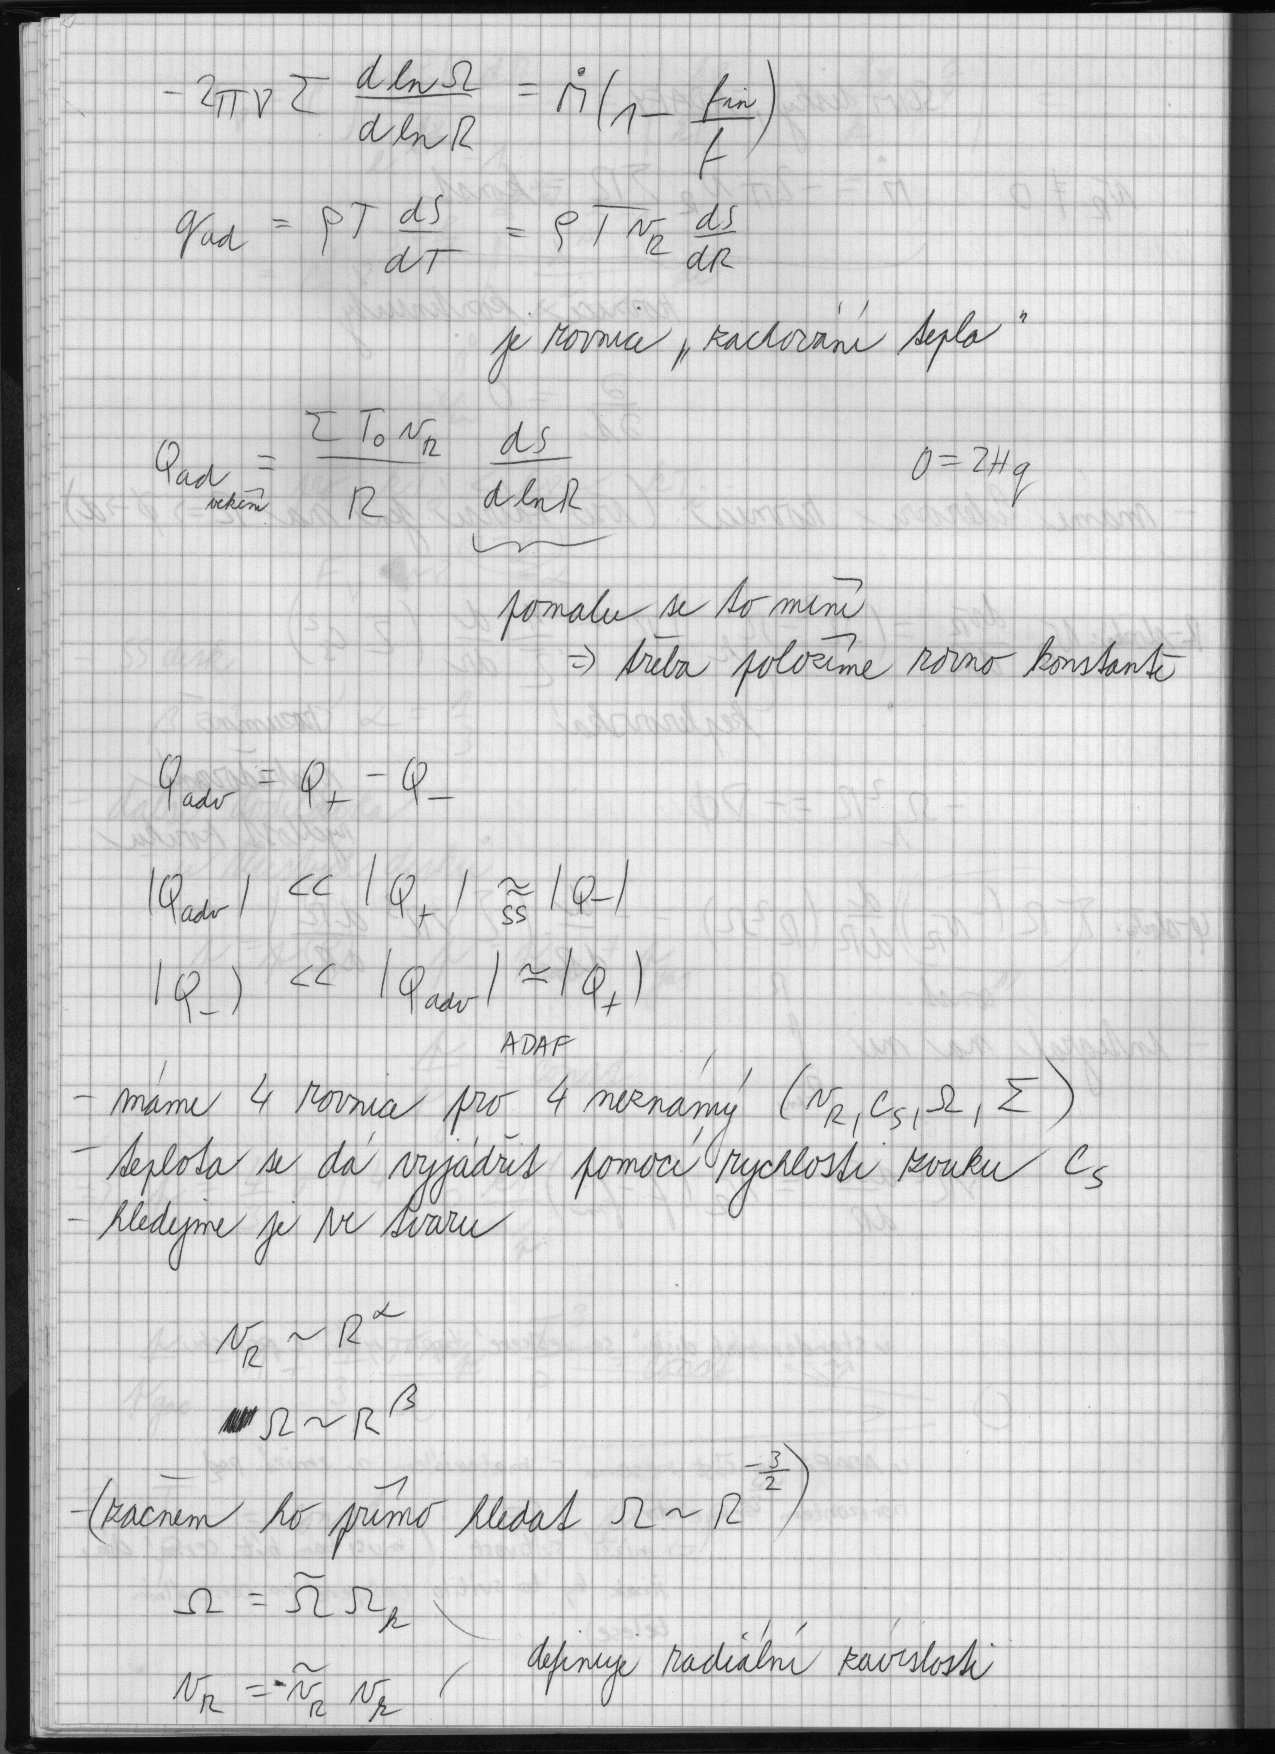 -2πν Σ d ln Ω / d ln R = Ṁ (1 - f_in / f)
q_ad = ρT dS/dT = ρ T v_R dS/dR
je rovnice „zachování tepla"
Q_ad = Σ T_0 v_R / R dS / d ln R   Q = 2Hq
pomalu se to mění
=> třeba položíme rovno konstantě
Q_adv = Q_+ - Q_-
|Q_adv| << |Q_+| ≈ |Q_-|
SS
|Q_-| << |Q_adv| ≃ |Q_+|
ADAF
- máme 4 rovnice pro 4 neznámý (v_R, c_s, Ω, Σ)
- teplota se dá vyjádřit pomocí rychlosti zvuku c_s
- hledejme je ve tvaru
v_R ~ R^α
Ω ~ R^β
- (začnem ho přímo hledat Ω ~ R^{-3/2})
Ω = Ω̃ Ω_k
definuje radiální závislosti
v_R = -ṽ_R v_k